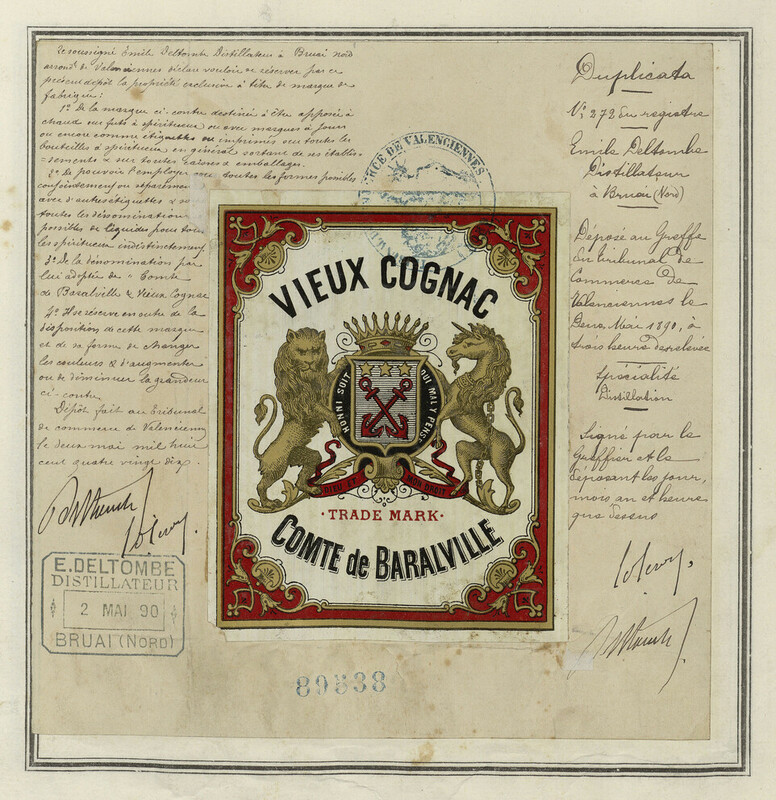 Je soussigné Emile Deltombe Distillateur à Bruai Nord
arrond. de Valenciennes déclare vouloir se réserver par ce
présent dépôt la propriété exclusive à titre de marque de
fabrique:
1º De la marque ci-contre destinée à être apposée à
chaud sur fûts à spiritueux ou avec marques à jour
ou encore comme étiquettes ou imprimés sur toutes les
bouteilles à spiritueux en général sortant de ses établis-
sements & sur toutes caisses & emballages.
2º De pouvoir l'employer sous toutes les formes possibles
conjointement ou séparément
avec d'autres étiquettes & sous
toutes les dénominations
possibles de liquides pour tous
les spiritueux indistinctement
3º De la dénomination par
lui adoptée de "Comte
de Baralville & Vieux Cognac
4º Il se réserve en outre de la
disposition de cette marque
et de sa forme de changer
les couleurs & d'augmenter
ou de diminuer la grandeur
ci-contre
Dépôt fait au Tribunal
de commerce de Valenciennes
le deux mai mil huit
cent quatre vingt dix.
E. DELTOMBE
DISTILLATEUR
2 MAI 90
BRUAI (NORD)
RCE DE VALENCIENNES
VIEUX COGNAC
HONNI SOIT QUI MAL Y PENSE
DIEU ET MON DROIT
· TRADE MARK ·
COMTE de BARALVILLE
89538
Duplicata
Nº 272 du registre
Emile Deltombe
Distillateur
à Bruai (Nord)
Déposé au Greffe
du tribunal de
Commerce de
Valenciennes le
Deux Mai 1890, à
trois heures de relevée
Spécialité
Distillation
Signé par le
Greffier et le
déposant les jour,
mois an et heure
que dessus